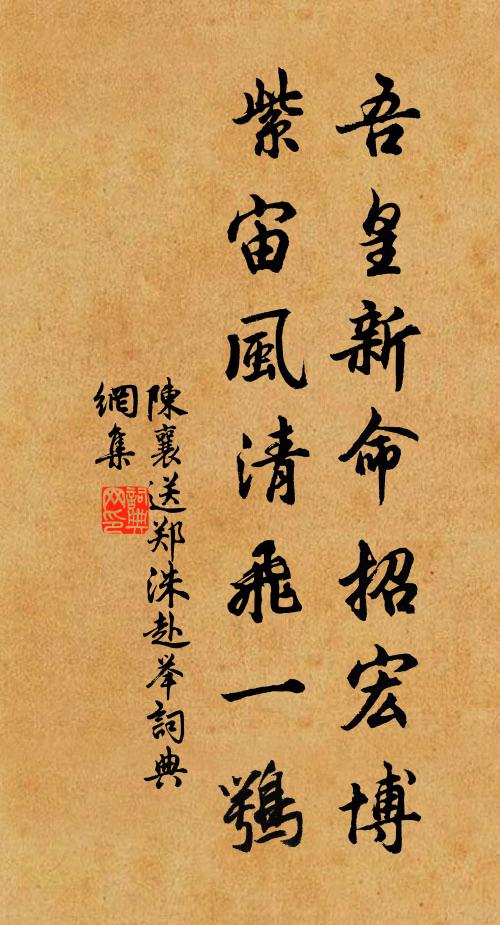 吾皇新命招宏博
紫宙風清飛一鶚
陳襄送郑洙赴举詞典
網集
詞典網印